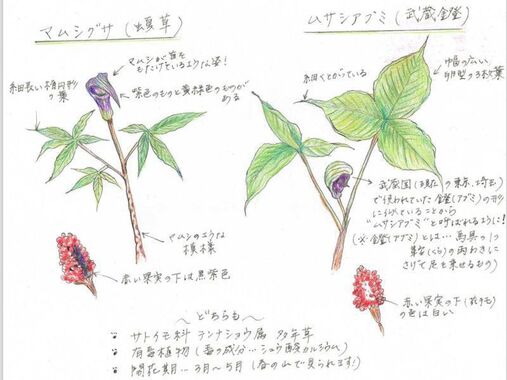 マムシグサ (蝮草)
マムシが首を
もたげているような姿!
紫色のものと黄緑色のものが
ある
細長い楕円形
の葉
マムシのような
模様
赤い果実の下は黒紫色
ムサシアブミ (武蔵鐙)
細くとがっている
幅の広い
卵型の3枚葉
武蔵国(現在の東京、埼玉)
で使われていた鐙(アブミ)の形
に似ていることから
"ムサシアブミ"と呼ばれるように!
(※鐙(アブミ)とは… 馬具の1つ
鞍(くら)の両わきに
さげて足を乗せるもの)
赤い果実の下
の色は白い
~どちらも~
サトイモ科 テンナンショウ属 多年草
有毒植物 (毒の成分…シュウ酸カルシウム)
開花期… 3月~5月 (春の山で見られます!)